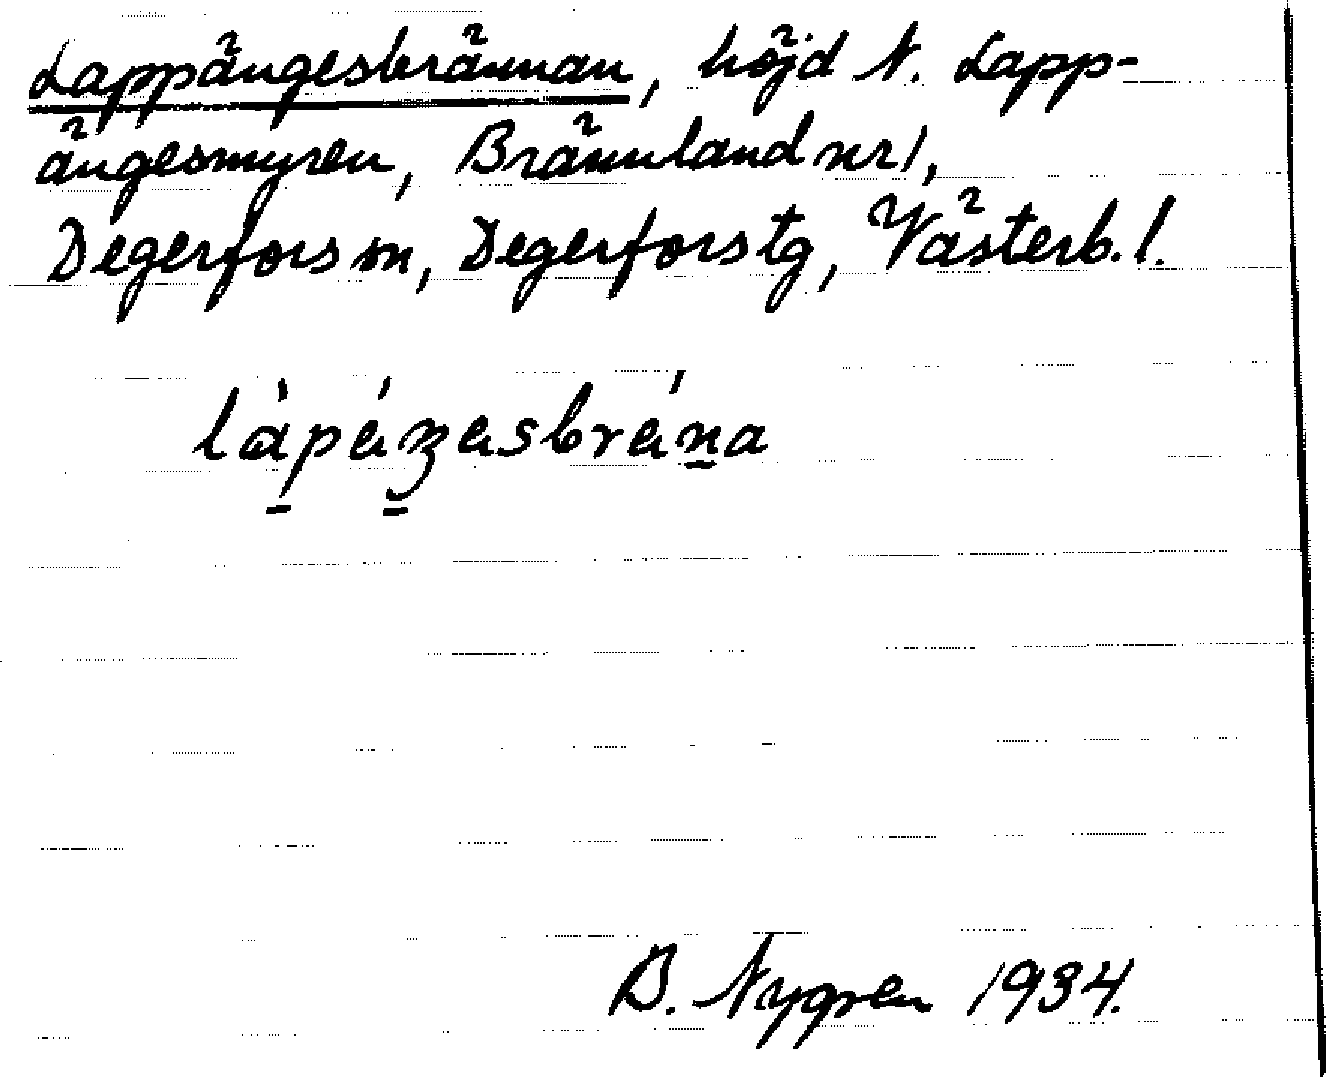 Lappängesbrännan, höjd N. Lapp-
ängesmyren, Brännland nr 1,
Degerfors sn, Degerfors tg, Västerb. l.
B. Nygren 1934.